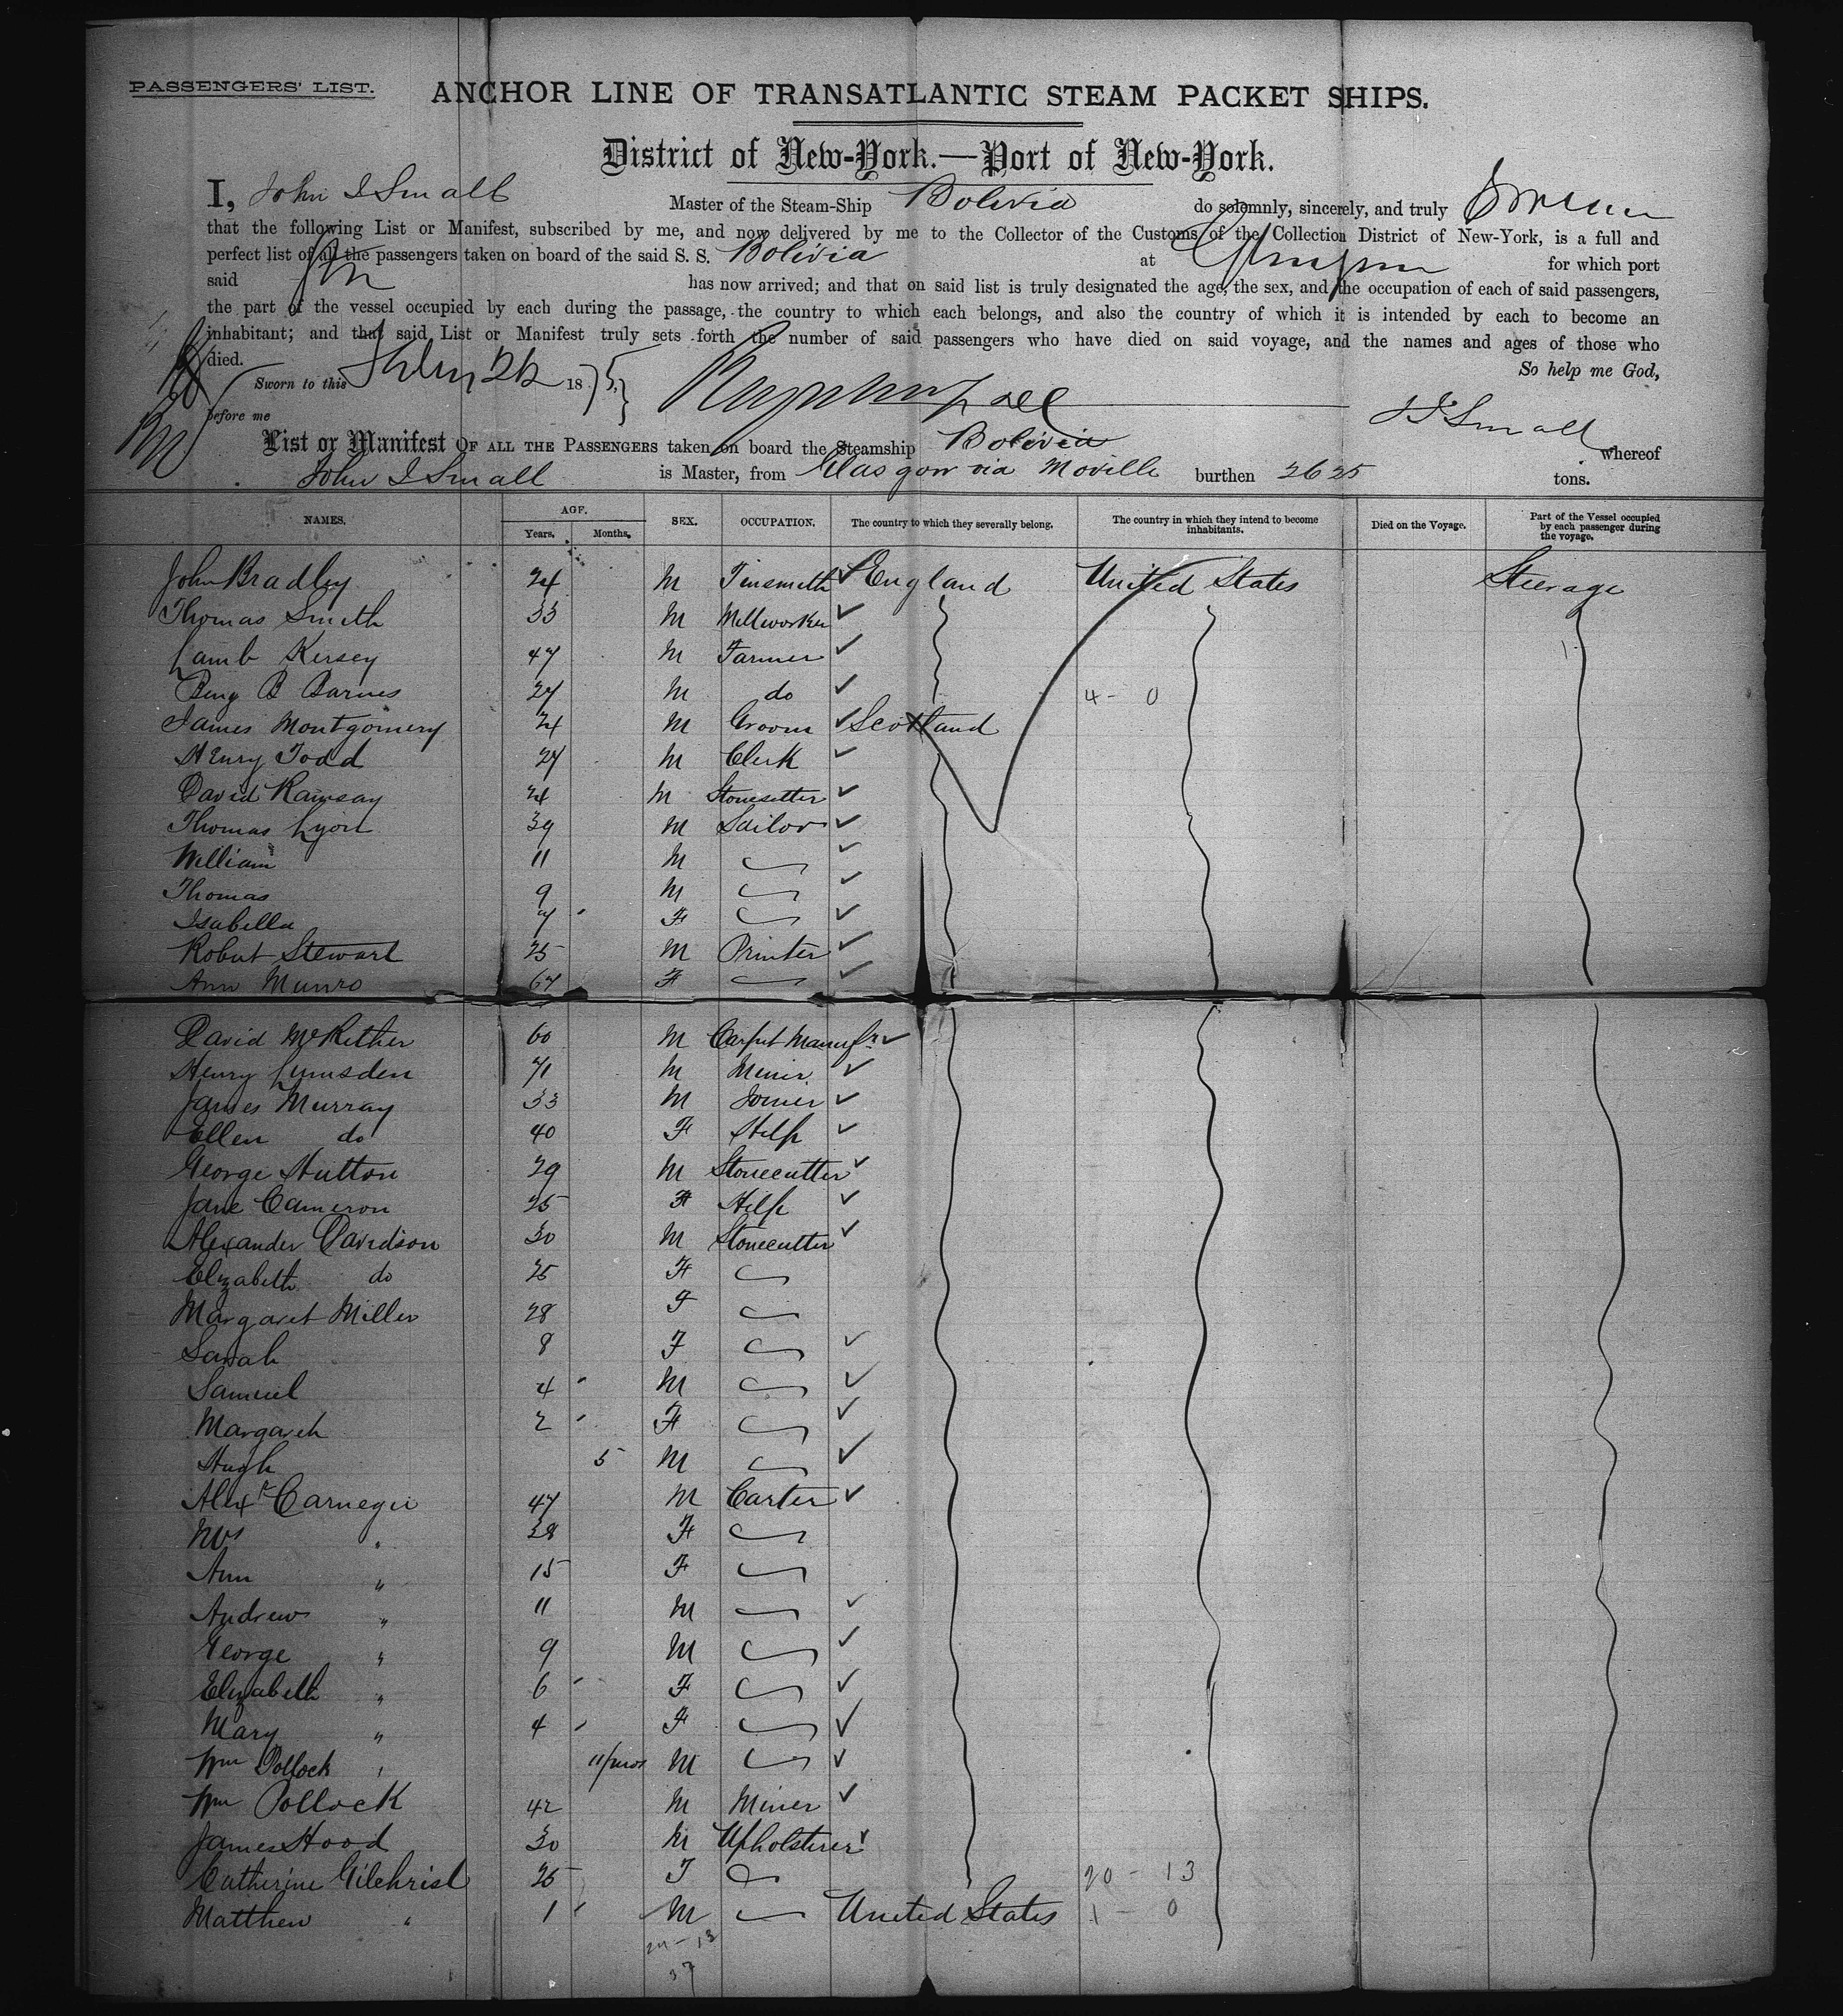 PASSENGERS' LIST.
ANCHOR LINE OF TRANSATLANTIC STEAM PACKET SHIPS.
District of New-York.—Port of New-York.
I, John I Small Master of the Steam-Ship Bolivia do solemnly, sincerely, and truly Swear
that the following List or Manifest, subscribed by me, and now delivered by me to the Collector of the Customs of the Collection District of New-York, is a full and
perfect list of all the passengers taken on board of the said S. S. Bolivia at Glasgow for which port
said has now arrived; and that on said list is truly designated the age, the sex, and the occupation of each of said passengers,
the part of the vessel occupied by each during the passage, the country to which each belongs, and also the country of which it is intended by each to become an
inhabitant; and that said List or Manifest truly sets forth the number of said passengers who have died on said voyage, and the names and ages of those who
died. So help me God,
Sworn to this 18 75
before me J I Small
List or Manifest OF ALL THE PASSENGERS taken on board the Steamship Bolivia whereof
John I Small is Master, from Glasgow via Moville burthen 2625 tons.
NAMES. AGE. Years. Months. SEX. OCCUPATION. The country to which they severally belong. The country in which they intend to become inhabitants. Died on the Voyage. Part of the Vessel occupied by each passenger during the voyage.
John Bradley 24 M Tinsmith England United States Steerage
Thomas Smith 33 M Millworker
Lamb Kersey 47 M Farmer
Benj B Barnes 27 M do 4 - 0
James Montgomery 24 M Groom Scotland
Henry Todd 27 M Clerk
David Ramsay 24 M Stonesetter
Thomas Lyon 39 M Sailor
William 11 M
Thomas 9 M
Isabella 7 F
Robert Stewart 25 M Printer
Ann Munro 67 F
David McKether 60 M Carpet Manufr
Henry Lumsden 71 M Miner
James Murray 33 M Joiner
Ellen do 40 F Help
George Hutton 29 M Stonecutter
Jane Cameron 25 F Help
Alexander Davidson 30 M Stonecutter
Elizabeth do 25 F
Margaret Miller 28 F
Sarah 8 F
Samuel 4 M
Margaret 2 F
Hugh 5 M
Alexr Carnegie 47 M Carter
Mrs " 38 F
Ann " 15 F
Andrew " 11 M
George " 9 M
Elizabeth " 6 F
Mary " 4 F
Wm Pollock " 11/mos M
Wm Pollock 42 M Miner
James Hood 30 M Upholsterer
Catherine Gilchrist 25 F 20 - 13
Matthew " 1 M United States 1 - 0
24 - 13
37